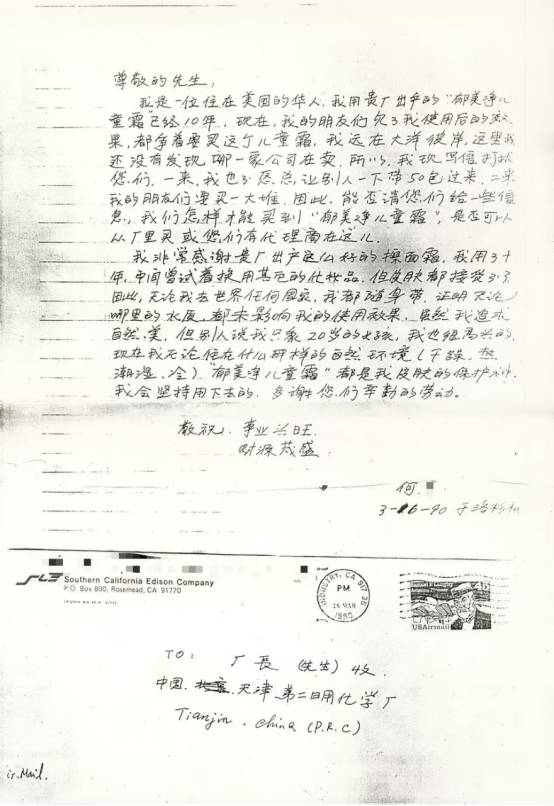 尊敬的先生:
我是一位住在美国的华人,我用贵厂出产的“郁美净儿
童霜”已经10年,现在,我的朋友们欠了我使用后的效
果,都争着要买这个儿童霜,我远在大洋彼岸,这里我
还没有发现哪一家公司在卖,所以,我现写信打扰
您们,一来,我也不愿总让别人一下带50包过来,二来
我的朋友们要买一大堆,因此,能否请您们给一些信
息,我们怎样才能买到“郁美净儿童霜”,是否可以
从厂里买或您们有代理商在这儿.
我非常感谢贵厂出产这么好的擦面霜,我用了十
年,中间曾试着换用其它的化妆品,但皮肤都接受不了
因此,无论我去世界任何国家,我都随身带,证明无论
哪里的水质,都未影响我的使用效果,虽然我追求
自然美,但别人说我只象20岁的女孩,我也很高兴的.
现在我无论住在什么那样的自然环境(干躁、热
潮湿、冷)“郁美净儿童霜”都是我皮肤的保护神.
我会坚持用下去的.多谢您们辛勤的劳动。
敬祝:事业兴旺.
财源茂盛.
何
3-16-90 于洛杉矶
SCE Southern California Edison Company
P.O. Box 800, Rosemead, CA 91770
INDUSTRY, CA 917
PM
16 MAR
1990
USAirmail
TO: 厂長 (先生) 收.
中国. 天津 第二日用化学厂
Tianjin, China (P.R.C)
ir Mail.